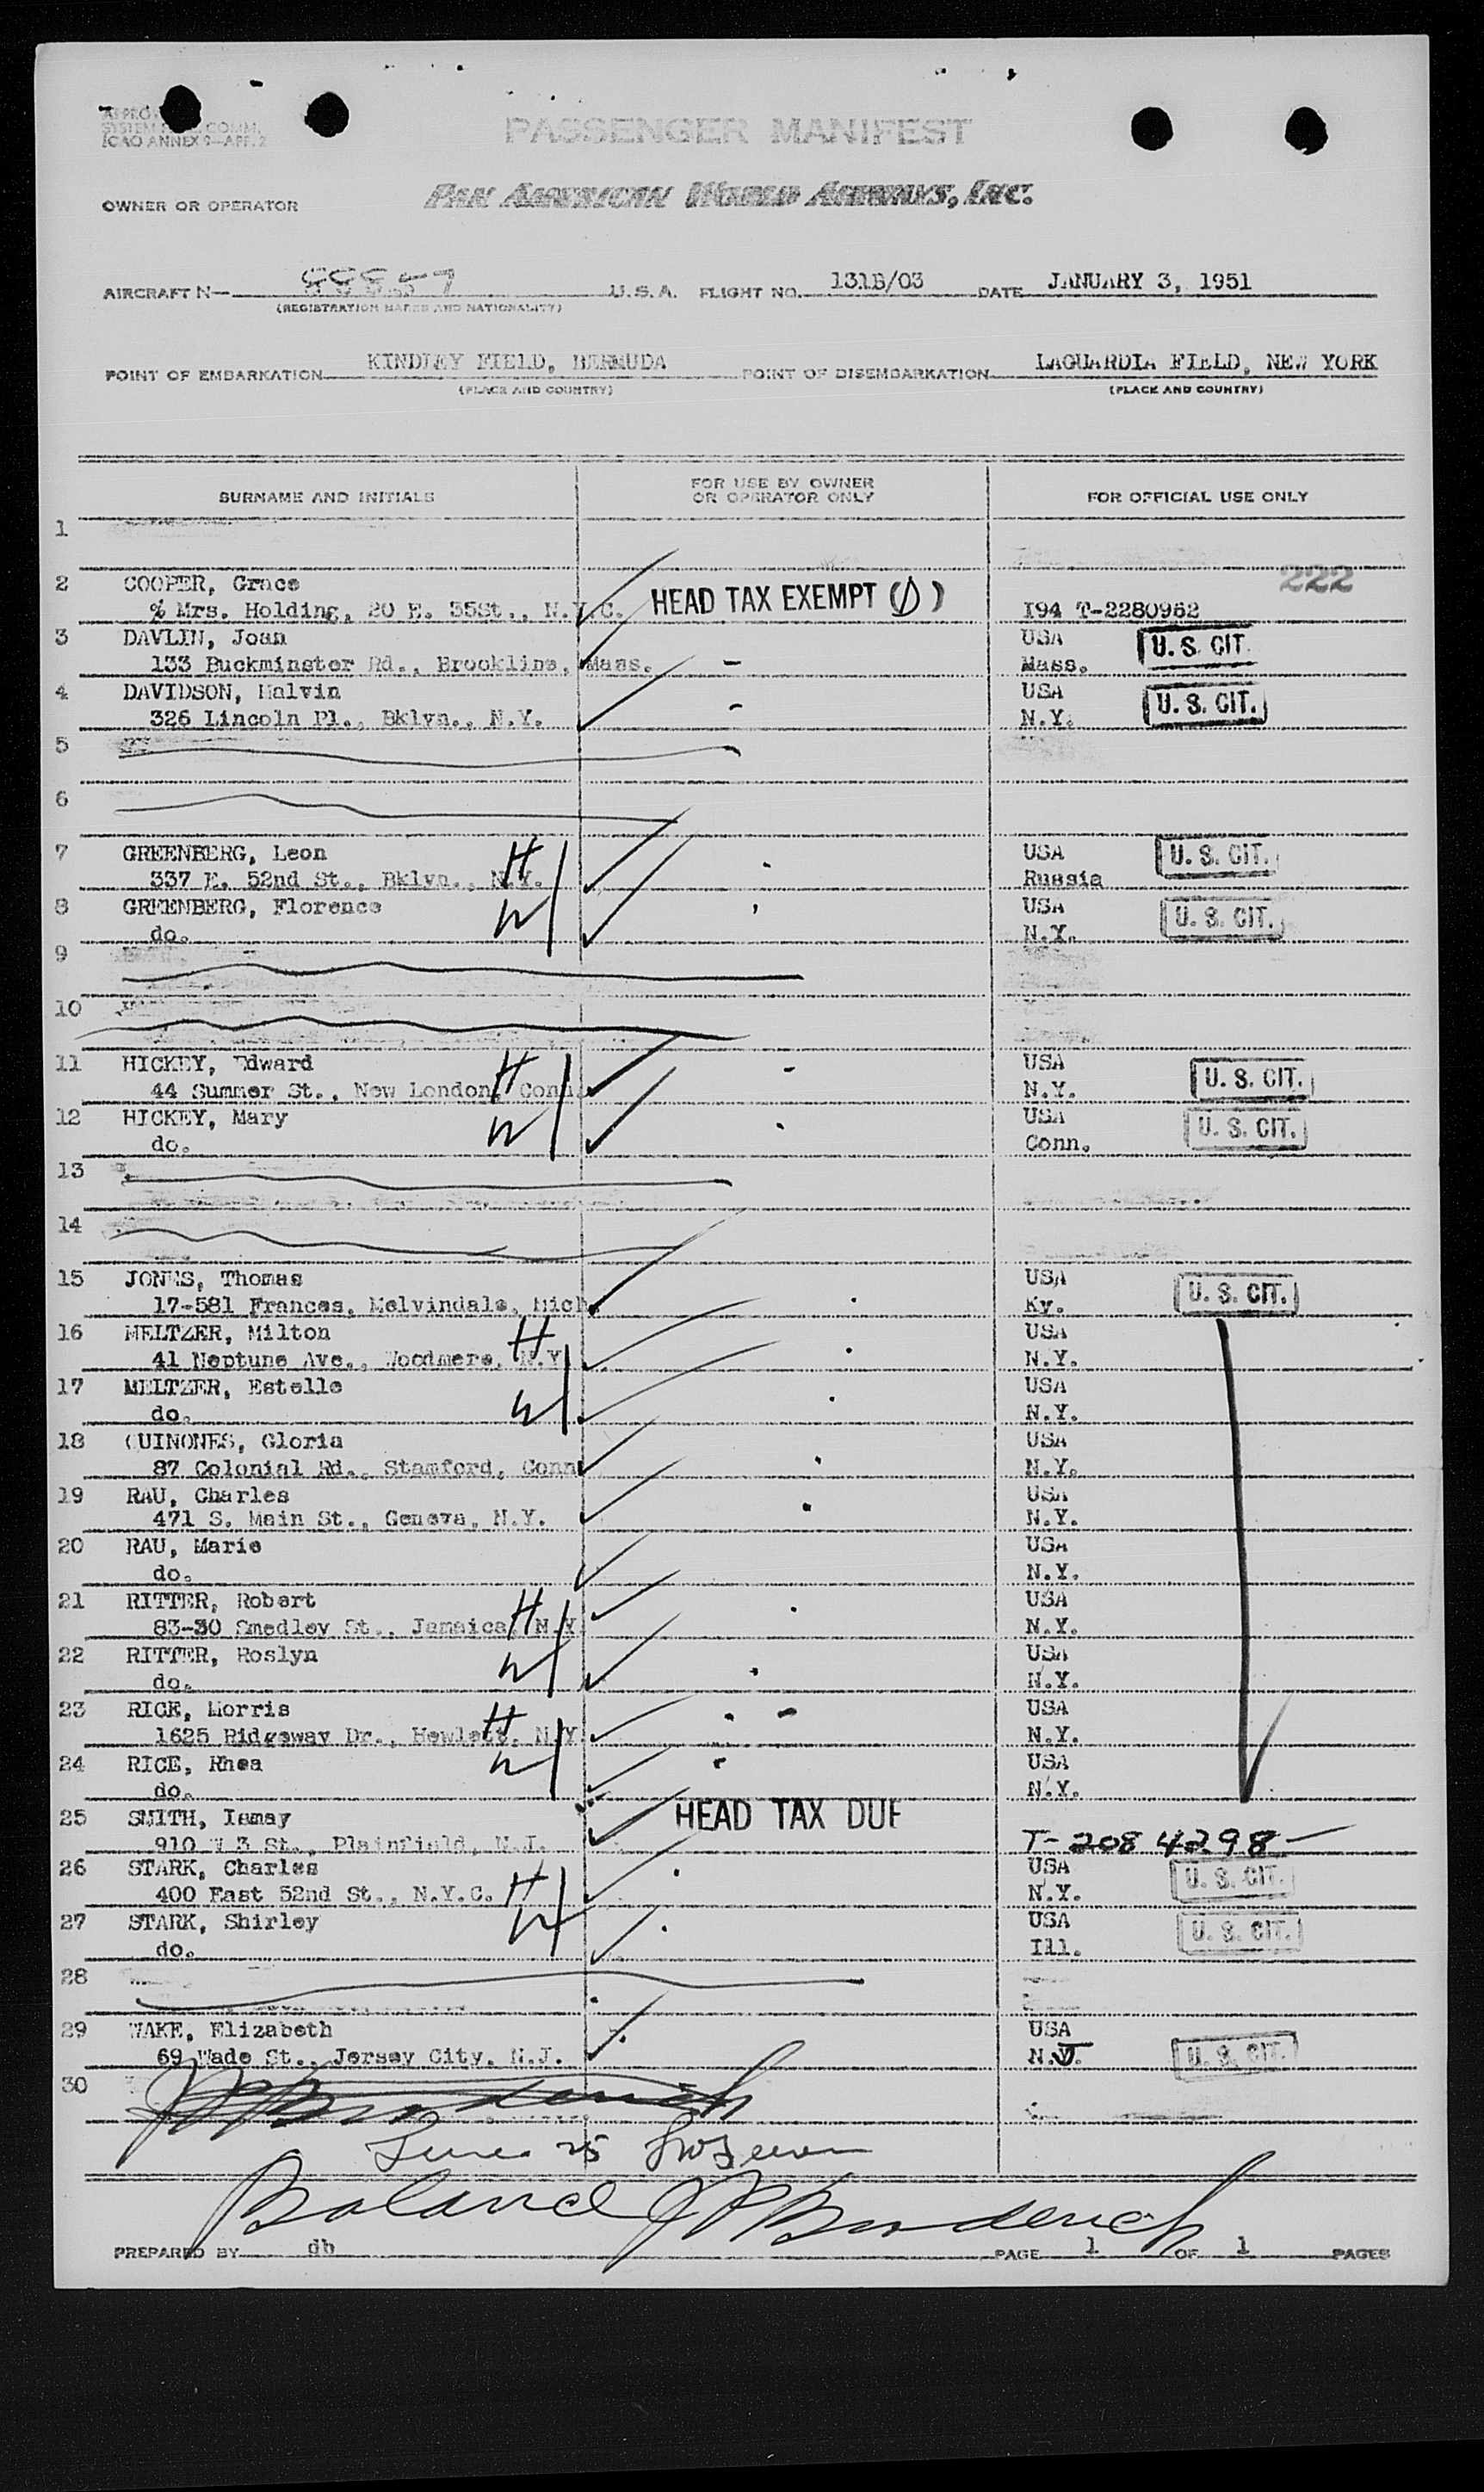 PASSENGER MANIFEST
ICAO ANNEX 9—APP. 2
OWNER OR OPERATOR PAN AMERICAN WORLD AIRWAYS, INC.
AIRCRAFT N— 88857 U.S.A. FLIGHT NO. 131B/03 DATE JANUARY 3, 1951
(REGISTRATION MARKS AND NATIONALITY)
POINT OF EMBARKATION KINDLEY FIELD, BERMUDA POINT OF DISEMBARKATION LAGUARDIA FIELD, NEW YORK
(PLACE AND COUNTRY) (PLACE AND COUNTRY)
SURNAME AND INITIALS FOR USE BY OWNER OR OPERATOR ONLY FOR OFFICIAL USE ONLY
1
2 COOPER, Grace HEAD TAX EXEMPT ( ) 222
% Mrs. Holding, 20 E. 35St., N.Y.C. I94 T-2280952
3 DAVLIN, Joan USA U. S. CIT.
133 Buckminster Rd., Brookline, Mass. - Mass.
4 DAVIDSON, Malvin USA U. S. CIT.
326 Lincoln Pl., Bklyn., N.Y. - N.Y.
5
6
7 GREENBERG, Leon H USA U. S. CIT.
337 E. 52nd St., Bklyn., N.Y. Russia
8 GREENBERG, Florence W USA U. S. CIT.
do. N.Y.
9
10
11 HICKEY, Edward H USA U. S. CIT.
44 Summer St., New London, Conn. N.Y.
12 HICKEY, Mary W USA U. S. CIT.
do. Conn.
13
14
15 JONES, Thomas USA U. S. CIT.
17-581 Frances, Melvindale, Mich. Ky.
16 MELTZER, Milton H USA
41 Neptune Ave., Woodmere, N.Y. N.Y.
17 MELTZER, Estelle W USA
do. N.Y.
18 QUINONES, Gloria USA
87 Colonial Rd., Stamford, Conn. N.Y.
19 RAU, Charles USA
471 S. Main St., Geneva, N.Y. N.Y.
20 RAU, Marie USA
do. N.Y.
21 RITTER, Robert H USA
83-30 Smedley St., Jamaica, N.Y. N.Y.
22 RITTER, Roslyn W USA
do. N.Y.
23 RICE, Morris H USA
1625 Ridgeway Dr., Hewlett, N.Y. N.Y.
24 RICE, Rhea W USA
do. N.Y.
25 SMITH, Ismay HEAD TAX DUE
910 W 3 St., Plainfield, N.J. T-2084298-
26 STARK, Charles H USA U. S. CIT.
400 East 52nd St., N.Y.C. N.Y.
27 STARK, Shirley W USA U. S. CIT.
do. Ill.
28
29 WAKE, Elizabeth USA
69 Wade St., Jersey City, N.J. N.J. U. S. CIT.
30
25
PREPARED BY db PAGE 1 OF 1 PAGES